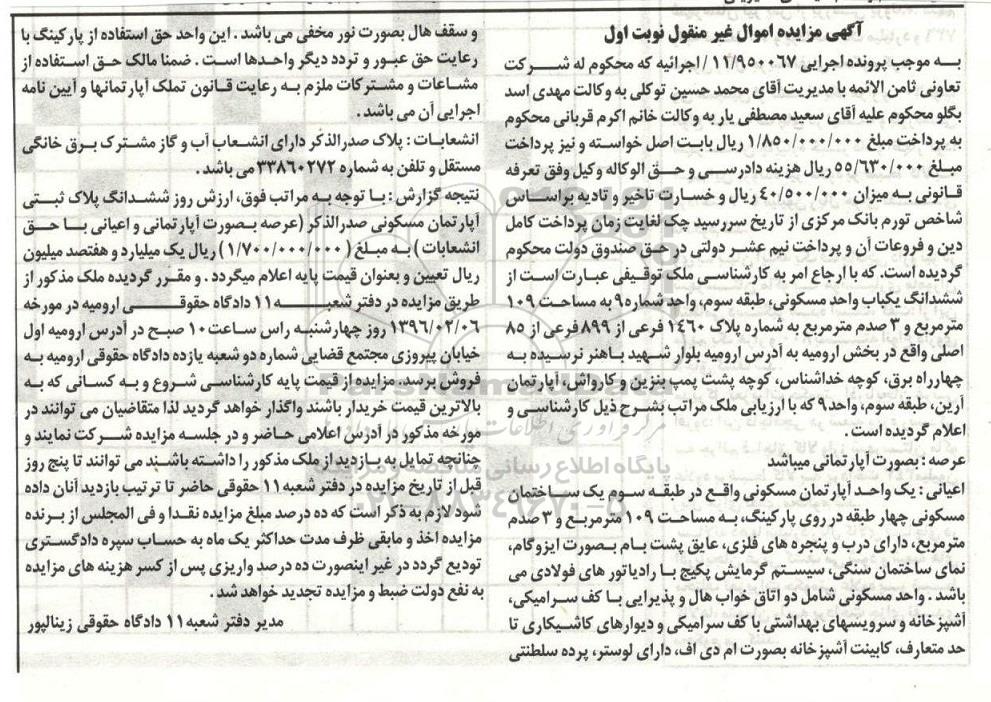 آگهی مزایده اموال غیر منقول نوبت اول
به موجب پرونده اجرایی ۱۱/۹۵۰۰۰۶۷ / اجرائیه که محکوم له شرکت
تعاونی ثامن الائمه با مدیریت آقای محمد حسین توکلی به وکالت مهدی اسد
بگلو محکوم علیه آقای سعید مصطفی یار به وکالت خانم اکرم قربانی محکوم
به پرداخت مبلغ ۱/۸۵۰/۰۰۰/۰۰۰ ریال بابت اصل خواسته و نیز پرداخت
مبلغ ۵۵/۶۳۰/۰۰۰ ریال هزینه دادرسی و حق الوکاله وکیل وفق تعرفه
قانونی به میزان ۴۰/۵۰۰/۰۰۰ ریال و خسارت تاخیر و تادیه براساس
شاخص تورم بانک مرکزی از تاریخ سررسید چک لغایت زمان پرداخت کامل
دین و فروعات آن و پرداخت نیم عشر دولتی در حق صندوق دولت محکوم
گردیده است. که با ارجاع امر به کارشناسی ملک توقیفی عبارت است از
ششدانگ یکباب واحد مسکونی، طبقه سوم، واحد شماره ۹ به مساحت ۱۰۹
مترمربع و ۳ صدم مترمربع به شماره پلاک ۱۴۶۰ فرعی از ۸۹۹ فرعی از ۸۵
اصلی واقع در بخش ارومیه به آدرس ارومیه بلوار شهید باهنر نرسیده به
چهارراه برق، کوچه خداشناس، کوچه پشت پمپ بنزین و کارواش، آپارتمان
آرین، طبقه سوم، واحد ۹ که با ارزیابی ملک مراتب بشرح ذیل کارشناسی و
اعلام گردیده است.
عرصه : بصورت آپارتمانی میباشد
اعیانی : یک واحد آپارتمان مسکونی واقع در طبقه سوم یک ساختمان
مسکونی چهار طبقه در روی پارکینگ، به مساحت ۱۰۹ مترمربع و ۳ صدم
مترمربع، دارای درب و پنجره های فلزی، عایق پشت بام بصورت ایزوگام،
نمای ساختمان سنگی، سیستم گرمایش پکیج با رادیاتور های فولادی می
باشد . واحد مسکونی شامل دو اتاق خواب هال و پذیرایی با کف سرامیکی،
آشپزخانه و سرویسهای بهداشتی با کف سرامیکی و دیوارهای کاشیکاری تا
حد متعارف، کابینت آشپزخانه بصورت ام دی اف، دارای لوستر، پرده سلطنتی
و سقف هال بصورت نور مخفی می باشد . این واحد حق استفاده از پارکینگ با
رعایت حق عبور و تردد دیگر واحدها است . ضمنا مالک حق استفاده از
مشاعات و مشترکات ملزم به رعایت قانون تملک آپارتمانها و آیین نامه
اجرایی آن می باشد .
انشعابات : پلاک صدرالذکر دارای انشعاب آب و گاز مشترک برق خانگی
مستقل و تلفن به شماره ۳۳۸۶۰۲۷۲ می باشد .
نتیجه گزارش : با توجه به مراتب فوق، ارزش روز ششدانگ پلاک ثبتی
آپارتمان مسکونی صدرالذکر (عرصه بصورت آپارتمانی و اعیانی با حق
انشعابات ) به مبلغ ( ۱/۷۰۰/۰۰۰/۰۰۰ ) ریال یک میلیارد و هفتصد میلیون
ریال تعیین و بعنوان قیمت پایه اعلام میگردد . و مقرر گردیده ملک مذکور از
طریق مزایده در دفتر شعبه ۱۱ دادگاه حقوقی ارومیه در مورخه
۱۳۹۶/۰۲/۰۶ روز چهارشنبه راس ساعت ۱۰ صبح در آدرس ارومیه اول
خیابان پیروزی مجتمع قضایی شماره دو شعبه یازده دادگاه حقوقی ارومیه به
فروش برسد. مزایده از قیمت پایه کارشناسی شروع و به کسانی که به
بالاترین قیمت خریدار باشند واگذار خواهد گردید لذا متقاضیان می توانند در
مورخه مذکور در آدرس اعلامی حاضر و در جلسه مزایده شرکت نمایند و
چنانچه تمایل به بازدید از ملک مذکور را داشته باشند می توانند تا پنج روز
قبل از تاریخ مزایده در دفتر شعبه ۱۱ حقوقی حاضر تا ترتیب بازدید آنان داده
شود لازم به ذکر است که ده درصد مبلغ مزایده نقدا و فی المجلس از برنده
مزایده اخذ و مابقی ظرف مدت حداکثر یک ماه به حساب سپرده دادگستری
تودیع گردد در غیر اینصورت ده درصد واریزی پس از کسر هزینه های مزایده
به نفع دولت ضبط و مزایده تجدید خواهد شد .
مدیر دفتر شعبه ۱۱ دادگاه حقوقی زینالپور
ParsNamadData
پایگاه اطلاع رسانی مناقصه